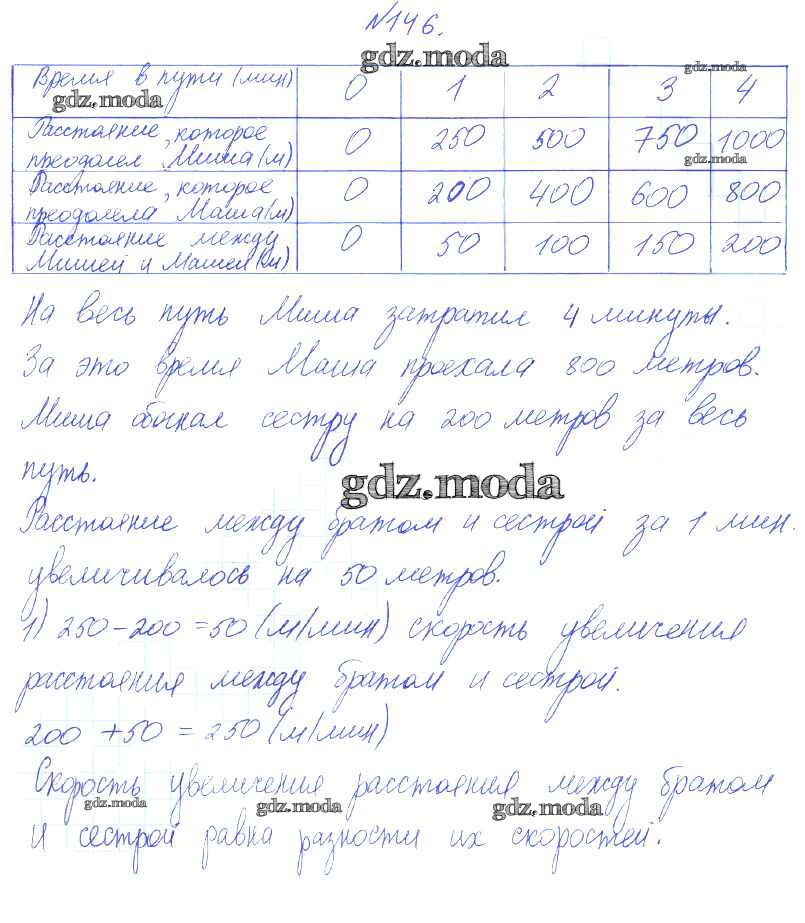 №146.
gdz.moda
Время в пути (мин) 0 1 2 3 4
gdz.moda
gdz.moda
Расстояние, которое
преодолел Миша (м) 0 250 500 750 1000
gdz.moda
Расстояние, которое
преодолела Маша (м) 0 200 400 600 800
Расстояние между
Мишей и Машей (м) 0 50 100 150 200
На весь путь Миша затратил 4 минуты.
За это время Маша проехала 800 метров.
Миша обогнал сестру на 200 метров за весь
путь.
gdz.moda
Расстояние между братом и сестрой за 1 мин.
увеличивалось на 50 метров.
1) 250-200=50 (м/мин) скорость увеличения
расстояния между братом и сестрой.
200+50=250 (м/мин)
Скорость увеличения расстояния между братом
gdz.moda gdz.moda gdz.moda
и сестрой равна разности их скоростей.